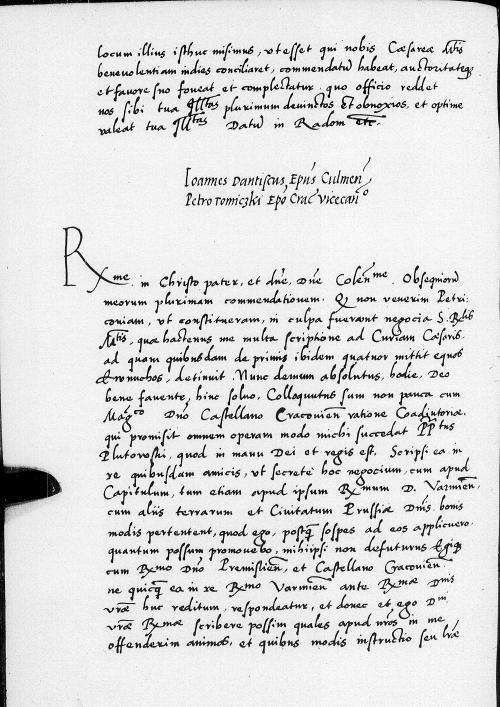 locum illius isthuc misimus, ut esset qui nobis Cæsareæ M<sup>tis</sup>
benevolentiam indies conciliaret, commendatū habeat, auctoritateq;
et favore suo foveat et complectatur. quo officio reddet
nos sibi tua Ill<sup>tas</sup> plurimum devinctos et obnoxios, et optime
valeat tua Ill<sup>tas</sup> Datū in Radom etc.
Ioannes Dantiscus Epūs Culmeñ
Petro Tomiczki Epō Crac̃ vicecan<sup>o</sup>
R<sup>me</sup> in Christo pater, et dñe, Dñe Colen<sup>me</sup>. Obsequiorū
meorum plurimam commendationem. Q non venerim Petri
coviam, ut constitueram, in culpa fuerunt negocia S. R
M<sup>tis</sup>, quæ hactenus me multa scriptione ad Curiam Cæsaris,
ad quem quibusdam de primis ibidem quatuor mittit equos
detinuit. Nunc demum absolutus, hodie, Deo
bene favente, hinc solvo. Colloquutus sum non pauca cum
Mag<sup>co</sup> Dño Castellano Cracovien̄ ratione Coadiutoriæ,
qui promisit omnem operam modo michi succedat
Plutovoski, quod in manu Dei et regis est. Scripsi ea in
re quibusdam amicis, ut secrete hoc negocium, cum apud
Capitulum, tum etiam apud ipsum R̄mum D. Varmien̄,
cum aliis terrarum et Civitatum Prussiæ Dñis bonis
modis pertentent, quod ego, postq̃ sospes ad eos applicuero,
quantum possum promovebo, mihiipsi non defuturus
cum R̄mo Dño Premislien̄, et Castellano Cracovien̄
ne quicq̃ ea in re R̄mo Varmien̄ ante R̄mæ Dnis
vræ huc reditum, respondeatur, et donec et ego D<sup>ni</sup>
vræ R̄mæ scribere possim quales apud nros in me
offenderim animos, et quibus modis instructio seu lræ